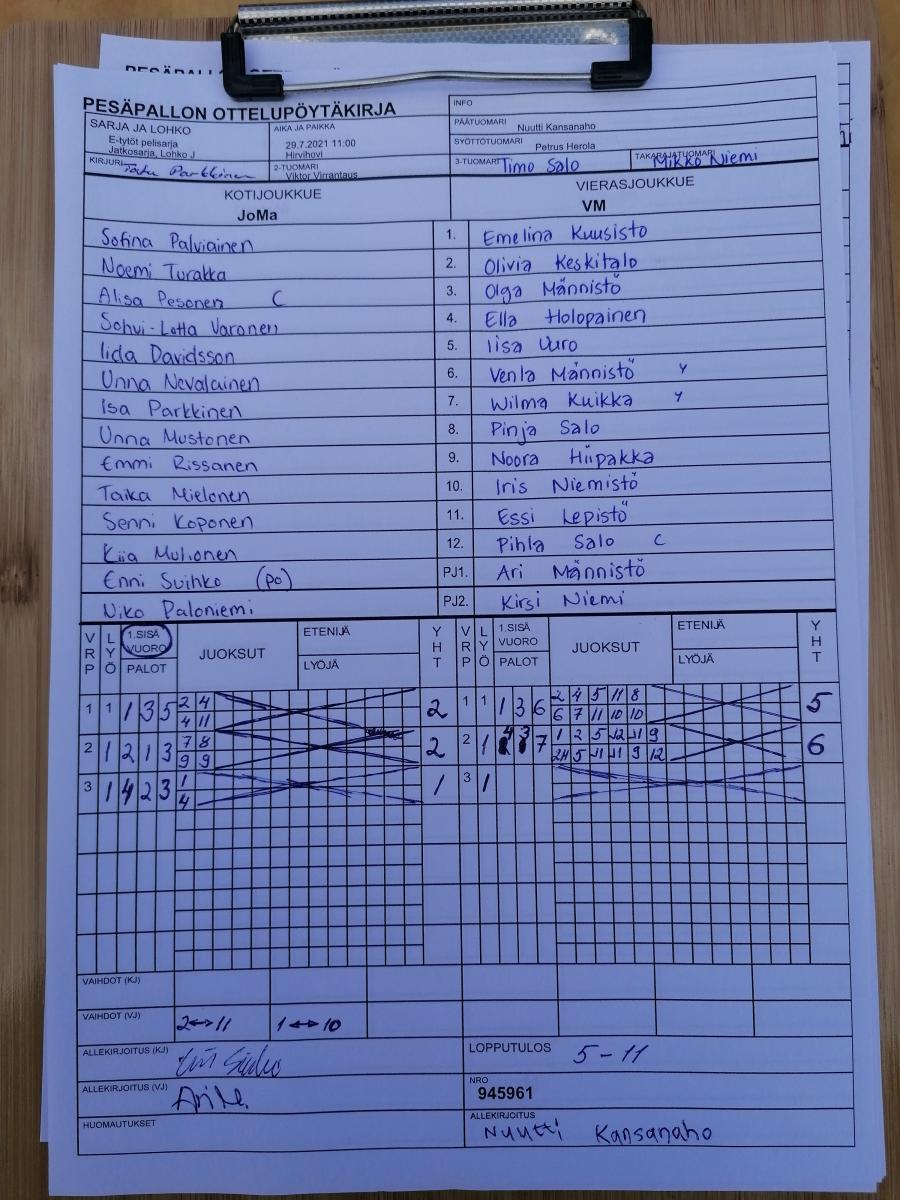 PESÄPALLON OTTELUPÖYTÄKIRJA
SARJA JA LOHKO
E-tytöt pelisarja
Jatkosarja, Lohko J
AIKA JA PAIKKA
29.7.2021 11:00
Hirvihovi
INFO
PÄÄTUOMARI Nuutti Kansanaho
SYÖTTÖTUOMARI Petrus Herola
KIRJURI Parkkinen
2-TUOMARI Viktor Virrantaus
3-TUOMARI Timo Salo
TAKARAJATUOMARI Mikko Niemi
KOTIJOUKKUE VIERASJOUKKUE
JoMa VM
Sofina Palviainen 1. Emelina Kuusisto
Noemi Turakka 2. Olivia Keskitalo
Alisa Pesonen C 3. Olga Männistö
Sohvi-Lotta Varonen 4. Ella Holopainen
Iida Davidsson 5. Iisa Uuro
Unna Nevalainen 6. Venla Männistö Y
Isa Parkkinen 7. Wilma Kuikka Y
Unna Mustonen 8. Pinja Salo
Emmi Rissanen 9. Noora Hiipakka
Taika Mielonen 10. Iris Niemistö
Senni Koponen 11. Essi Lepistö
Kiia Mulionen 12. Pihla Salo C
Enni Suihko (PO) PJ1. Ari Männistö
Niko Paloniemi PJ2. Kirsi Niemi
VRP LYÖ 1.SISÄ VUORO PALOT JUOKSUT ETENIJÄ LYÖJÄ YHT VRP LYÖ 1.SISÄ VUORO PALOT JUOKSUT ETENIJÄ LYÖJÄ YHT
1 1 1 3 5 2 4 2 1 1 1 3 6 2 4 5 11 8 5
4 11 6 7 11 10 10
2 1 2 1 3 7 8 2 2 1 4 3 7 1 2 5 12 11 9 6
9 9 5 11 11 9 12
3 1 4 2 3 1 1 3 1
4
VAIHDOT (KJ)
VAIHDOT (VJ) 2↔11 1↔10
ALLEKIRJOITUS (KJ)
LOPPUTULOS 5-11
ALLEKIRJOITUS (VJ) Ari M.
NRO
945961
HUOMAUTUKSET
ALLEKIRJOITUS
Nuutti Kansanaho